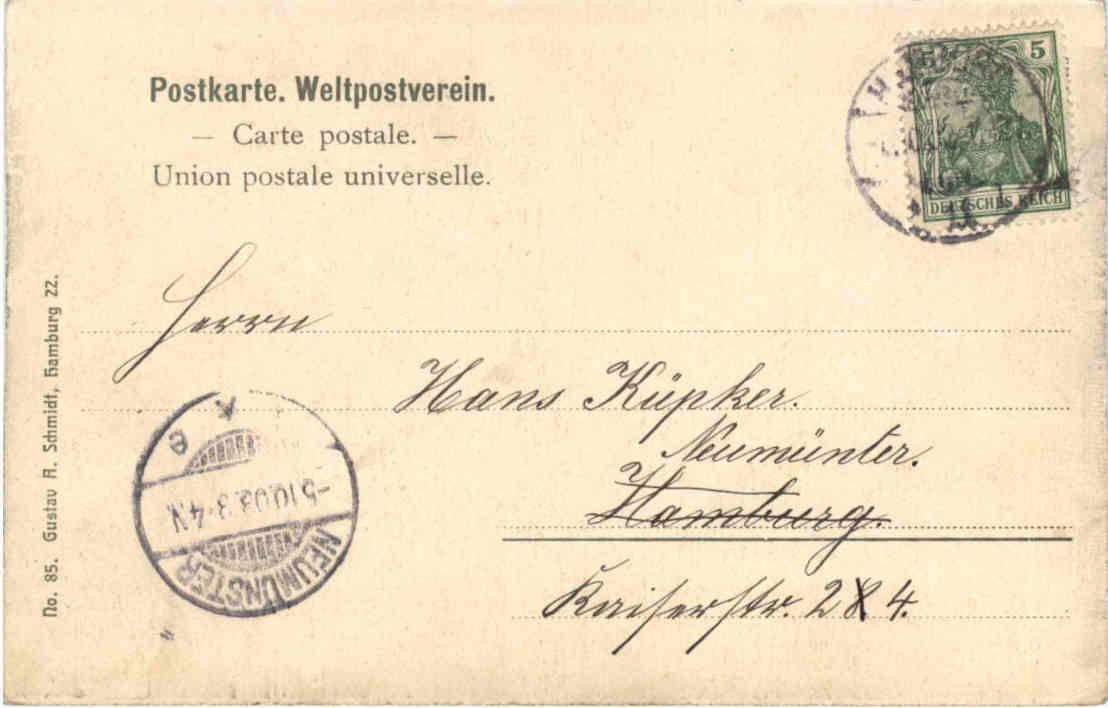 Postkarte. Weltpostverein.
— Carte postale. —
Union postale universelle.
5
DEUTSCHES REICH
Herrn
Hans Küpker.
Neumünter.
Hamburg.
Kaiserstr. 2 4.
No. 85. Gustav A. Schmidt, Hamburg 22.
-5.10.03.3-4N.
NEUMÜNSTER